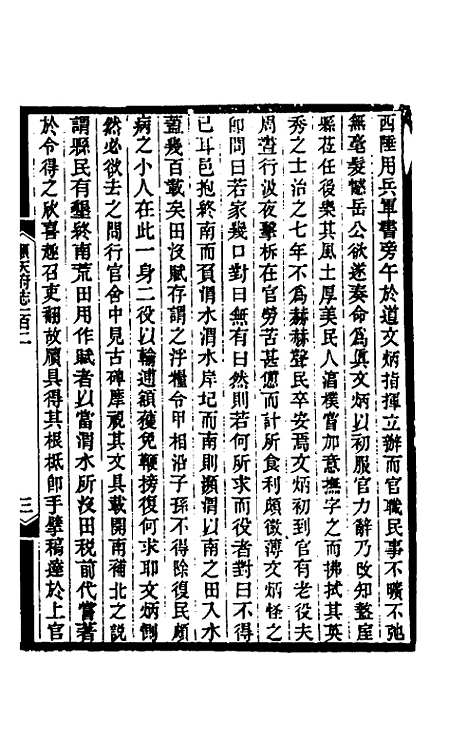 西陲用兵軍書旁午於道文炳指揮立辦而官職民事不曠不弛
無毫髮憾岳公欲遂奏命為真文炳以初服官力辭乃改知盩厔
縣莅任後樂其風土厚美民人湻樸嘗加意撫字之而拂拭其英
秀之士治之七年不為赫赫聲民卒安焉文炳初到官有老役夫
周遊行汲夜擊柝在官勞苦甚愿而計所食利頗微薄文炳怪之
卽問曰若家幾口對曰無有曰然則若何所求而役者對曰不得
已耳邑抱終南而負渭水岸圮而南則瀕渭以南之田入水
蓋幾百載矣田沒賦存謂之浮糧令甲相沿子孫不得除復民頗
病之小人在此一身二役以輸逋額獲免鞭搒復何求耶文炳惻
然必欲去之間行官舍中見古碑摩視其文具載開南補北之說
謂縣民有墾終南荒田用作賦者以當渭水所沒田稅前代嘗著
於令得之欣喜趣召吏翻故牘具得其根柢卽手擘稿達於上官
順天府志一百二
三